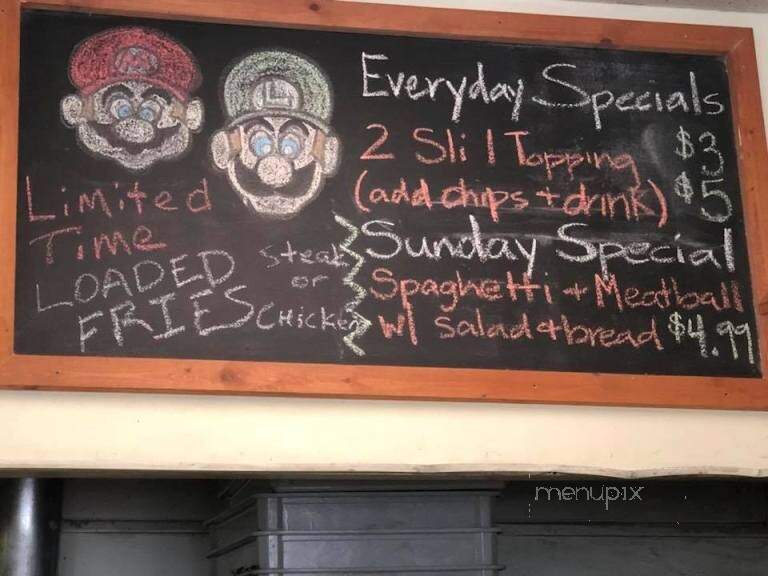 M
L
Limited
Time
LOADED
FRIES
Steak
or
Chicken
Everyday Specials
2 Sli 1 Topping $3
(add chips + drink) $5
Sunday Special
Spaghetti + Meatball
w/ Salad + bread $4.99
menupix